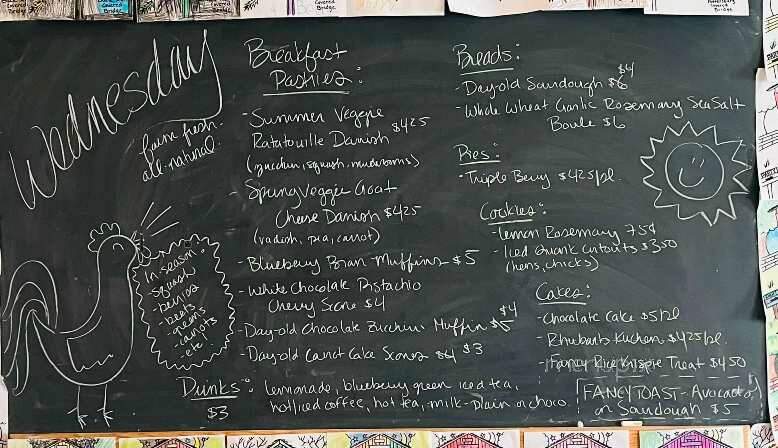 Wednesday
farm fresh.
all-natural.
In season:
-squash
-berries
-beets
-greens
-carrots
-etc.
Breakfast
Pastries:
-Summer Veggie
Ratatouille Danish $4.25
(zucchini, squash, mushrooms)
Spring Veggie Goat
Cheese Danish $4.25
(radish, pea, carrot)
-Blueberry Bran Muffins $5
-White Chocolate Pistachio
Cherry Scone $4
-Day-old Chocolate Zucchini Muffin $4
-Day-old Carrot Cake Scones $4 $3
Drinks: lemonade, blueberry green iced tea,
$3 hot/iced coffee, hot tea, milk-plain or choco.
Breads:
-Day-old Sourdough $6 $4
-Whole Wheat Garlic Rosemary Sea Salt
Boule $6
Pies:
-Triple Berry $4.25/sl.
Cookies:
-Lemon Rosemary 75¢
-Iced cutouts $3.50
(hens, chicks)
Cakes:
-Chocolate Cake $5/sl
-Rhubarb Kuchen $4.25/sl.
-Fancy Rice Krispie Treat $4.50
FANCY TOAST - Avocado
on Sourdough $5